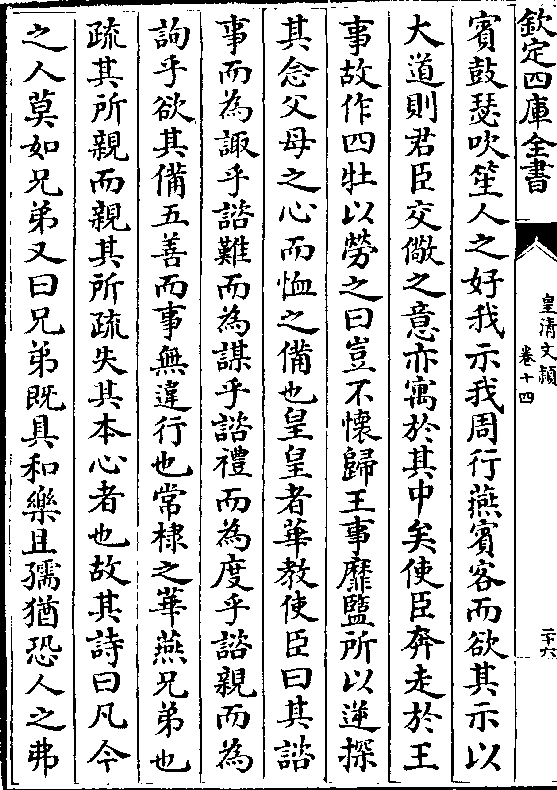 欽定四庫全書
皇清文穎
卷十四
二十六
賓鼓瑟吹笙人之好我示我周行燕賓客而欲其示以
大道則君臣交儆之意亦寓於其中矣使臣奔走於王
事故作四牡以勞之曰豈不懷歸王事靡盬所以逆探
其念父母之心而恤之備也皇皇者華教使臣曰其諮
事而為諏乎諮難而為謀乎諮禮而為度乎諮親而為
詢乎欲其備五善而事無違行也常棣之華燕兄弟也
疏其所親而親其所疏失其本心者也故其詩曰凡今
之人莫如兄弟又曰兄弟既具和樂且孺猶恐人之弗